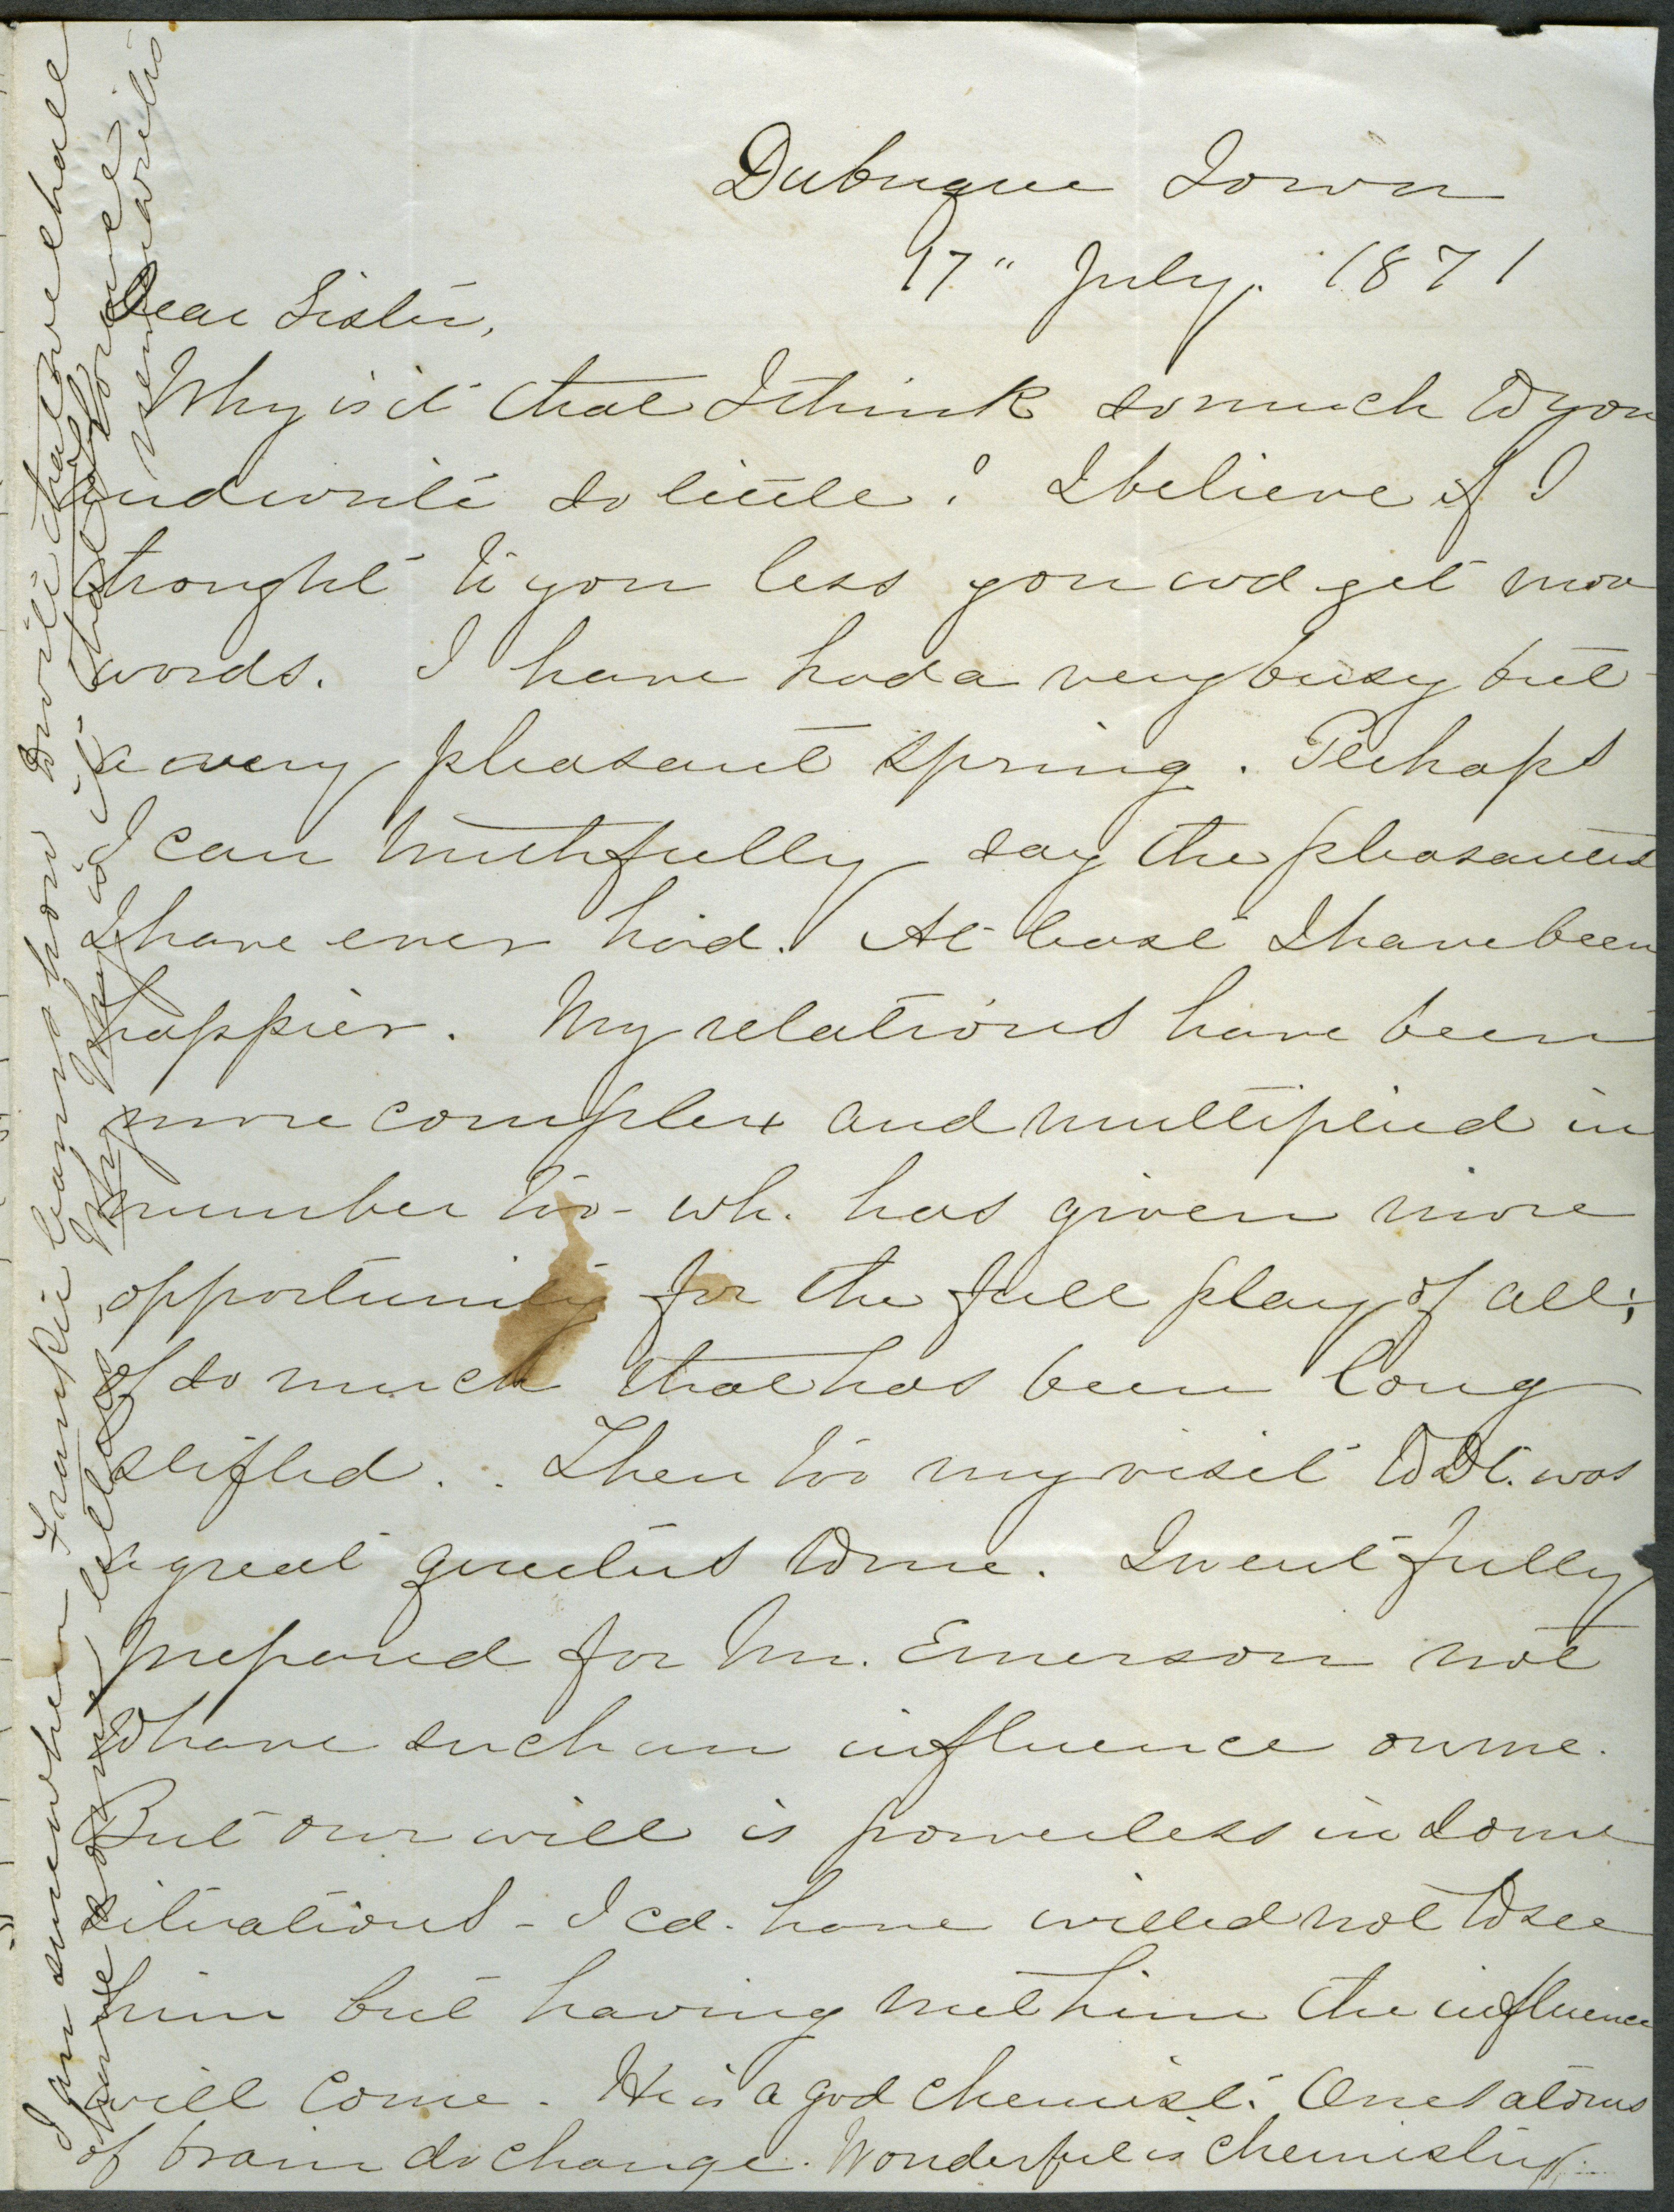 Dubuque Iowa
17" July. 1871
Dear Sister,
Why is it that I think so much to you
and write so little? I believe if I
thought to you less you wd get more
words. I have had a very busy but
a very pleasant spring. Perhaps
I can truthfully say the pleasantest
I have ever had. At least I have been
happier. My relations have been
more complex and multiplied in
number too - wh. has given more
opportunity for the full play of all,
of so much that has been long
stifled. Then too my visit to St. was
a great quietus to me. I went fully
prepared for Mr. Emerson not
to have such an influence on me.
But our will is powerless in some
situations - I cd. have willed not to see
him but having met him the influence
will come. He is a god chemist. Ones atoms
of brain do change. Wonderful is chemistry.
I am sure when Frankie learns how to write that we shall
have some letters. Why is it that